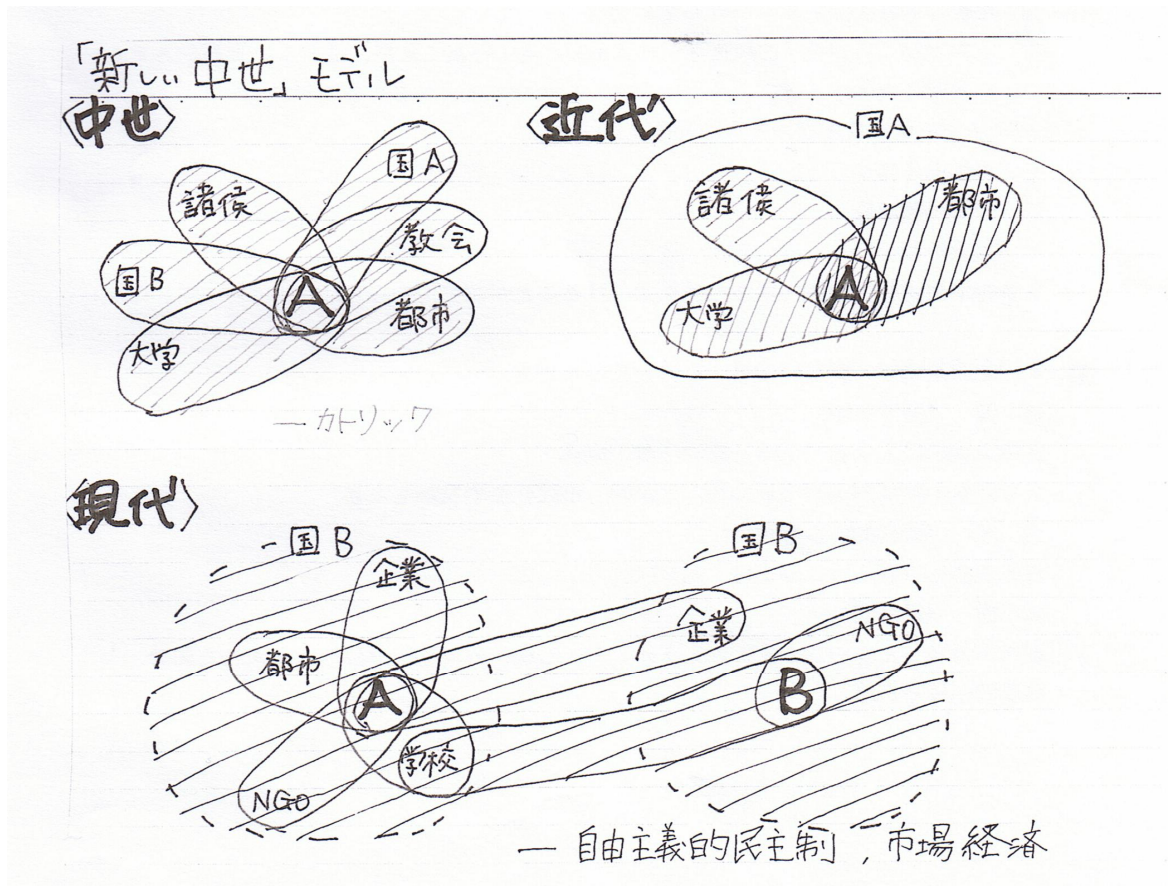 「新しい中世」モデル
〈中世〉
国A
諸侯
教会
国B
A
都市
大学
— カトリック
〈近代〉
国A
諸侯
都市
A
大学
〈現代〉
国B
企業
都市
A
学校
NGO
国B
企業
NGO
B
— 自由主義的民主制,市場経済